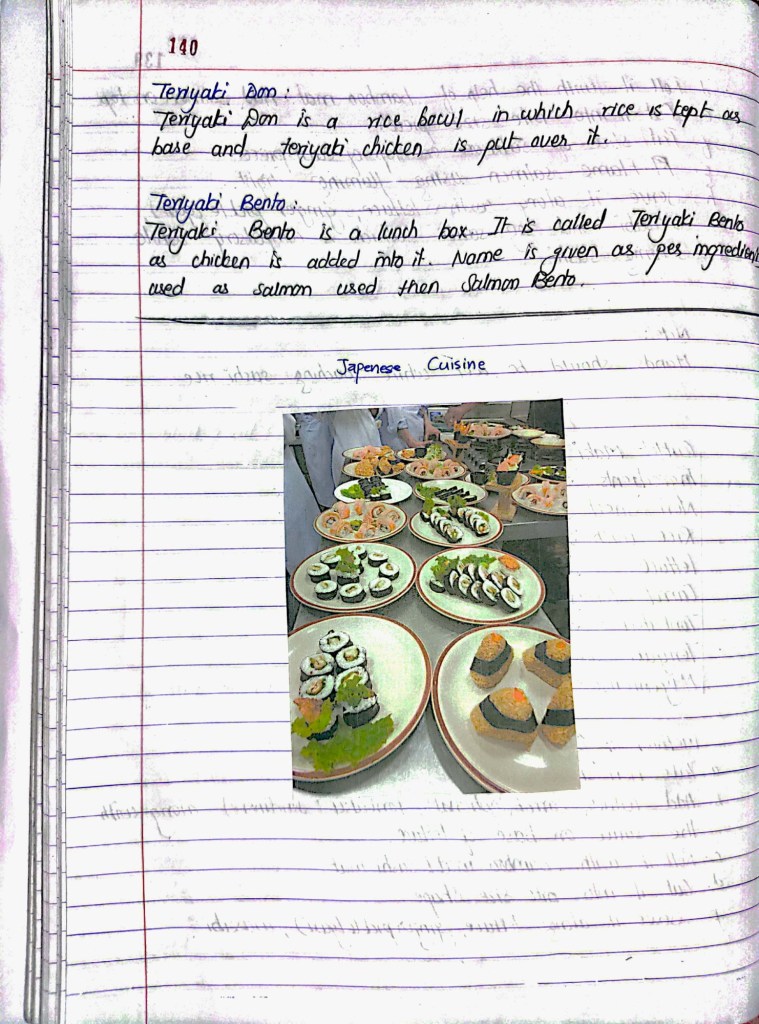 140
Teriyaki Don :
Teriyaki Don is a rice bowl in which rice is kept as
base and teriyaki chicken is put over it.
Teriyaki Bento :
Teriyaki Bento is a lunch box. It is called Teriyaki Bento
as chicken is added into it. Name is given as per ingredient
used as salmon used then Salmon Bento.
Japenese Cuisine